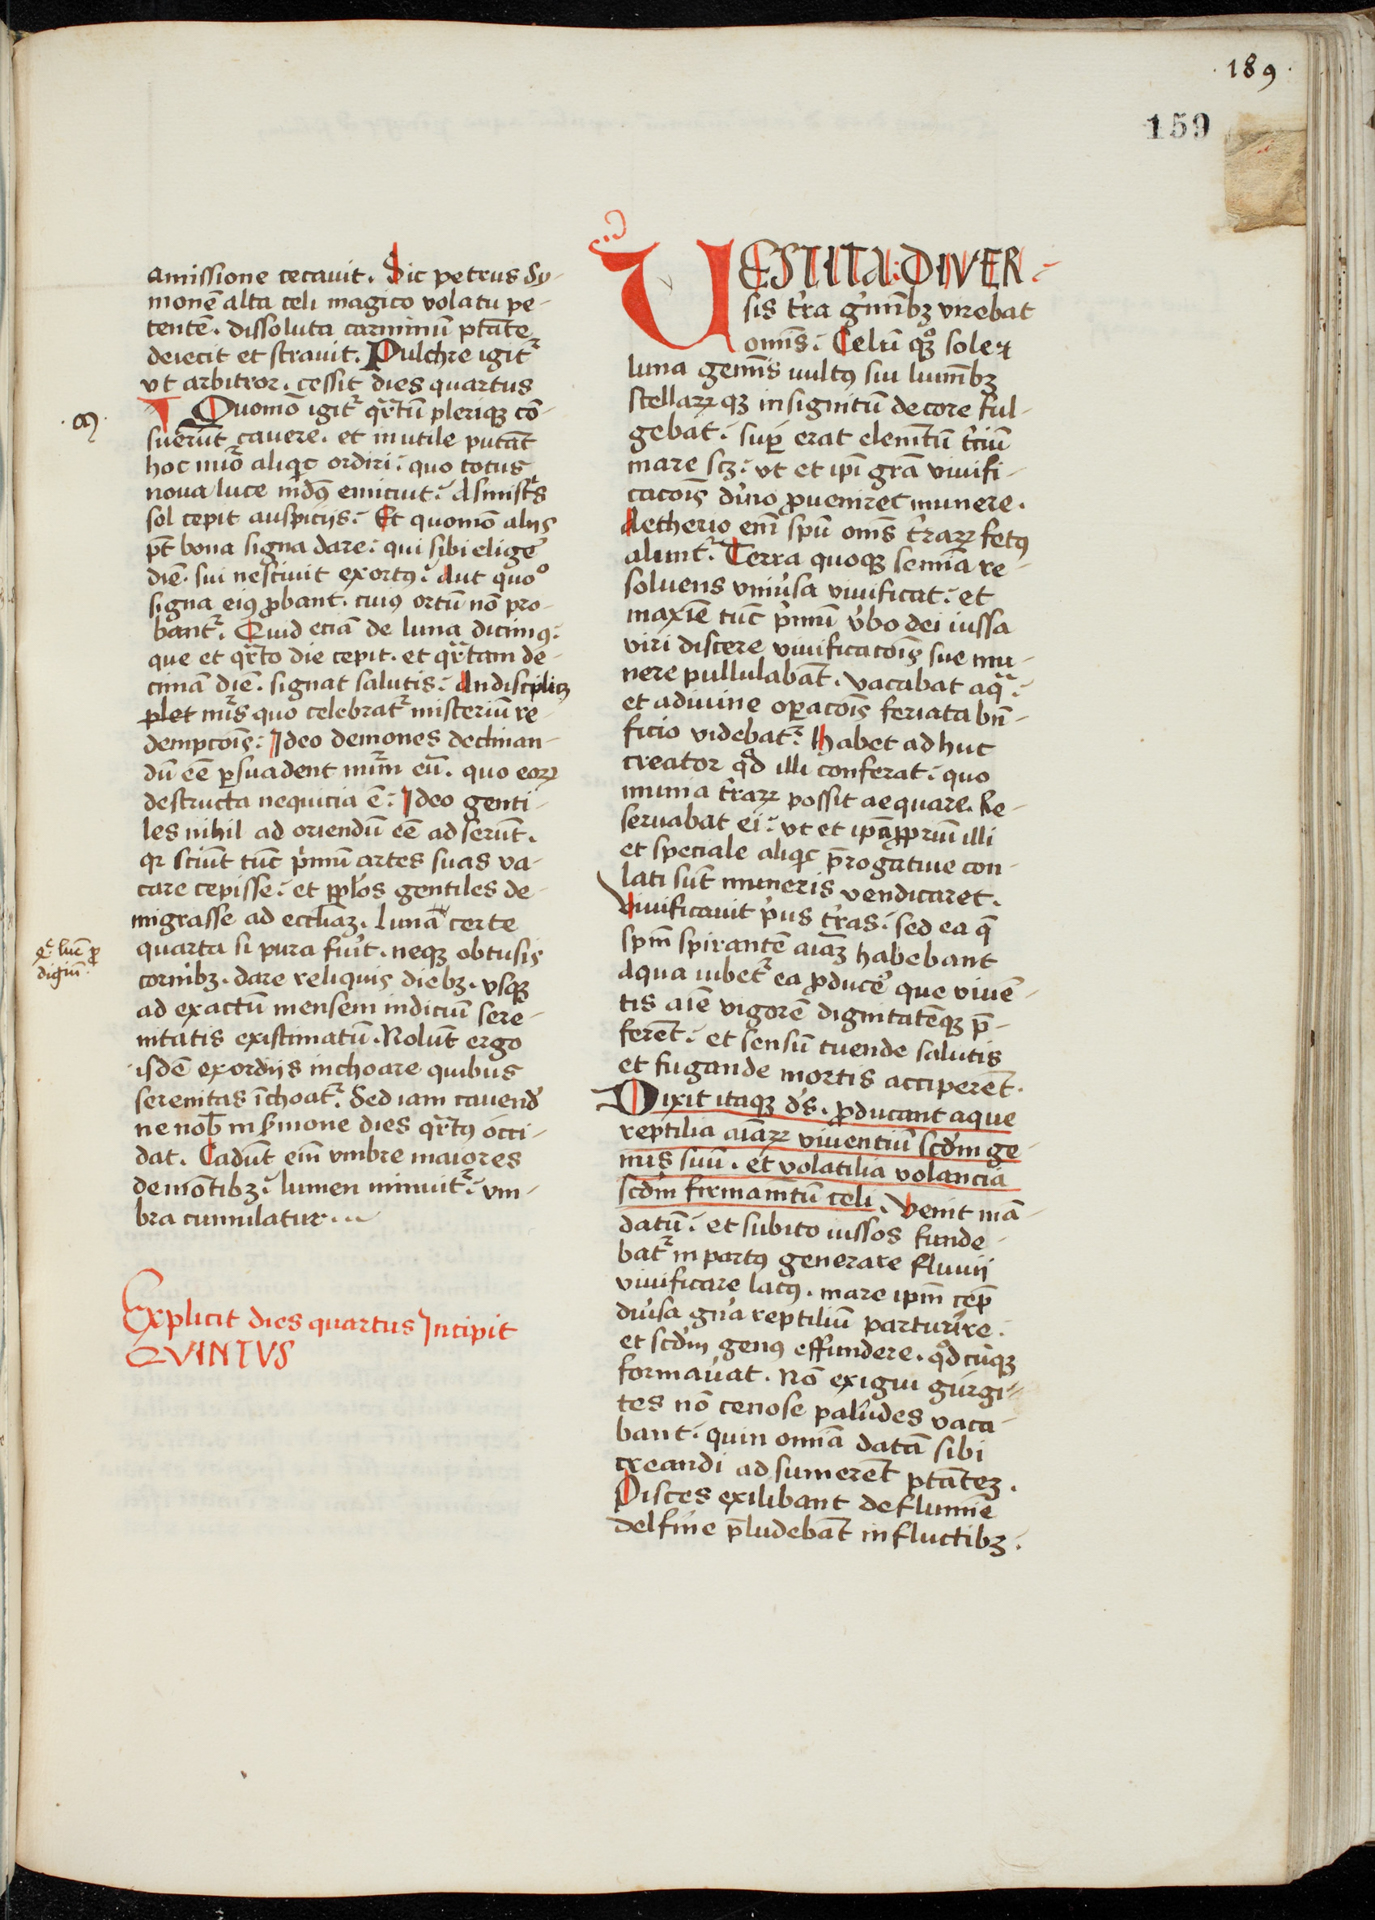 .189.
159
amissione cecauit. Sic petrus Sy-
monē alta celi magico volatu pe-
tentē. dissoluta carminū ptāte
deiecit et strauit. Pulchre igit᷑
vt arbitror. cessit dies quartus
Quomō igit᷑ qr̄tū pleriqꝫ cō-
suerūt cauere. et inutile putāt
hoc nūo aliqͥc ordiri: quo totus
noua luce mūdꝰ enituit: Asinistͥs
sol cepit auspicijs: Et quomō alijs
pt̄ bona signa dare: qui sibi elige᷑
diē. sui nesciuit exortꝰ: Aut quoº
signa eiꝰ ꝓbant. cuiꝰ ortū nō pro-
bant᷑. Quid eciā de luna dicimꝰ:
que et qr̄to die cepit. et qr̄tam de-
cimā diē. signat salutis: An displicꝫ
plet nūs quo celebrat᷑ misteriū re-
dempcoīs: Ideo demones declinan-
dū eē ꝑsuadent nūm eū. quo eoꝝ
destructa nequicia ē: Ideo genti-
les nihil ad oriendū eē adserūt.
qr sciūt tūc pͥmū artes suas va-
care cepisse: et pp̄los gentiles de-
migrasse ad eccliāꝫ. Lunā certe
quarta si pura fuīt. neqꝫ obtusis
cornibꝫ. dare reliquis diebꝫ. vsqꝫ
ad exactum mensem indiciū sere-
nitatis existimatū. Nolūt ergo
isdē exordijs inchoare quibus
serenitas īchoat᷑. Sed iam cauend᷑
ne nob̄ in sͥmone dies qr̄tꝰ occi-
dat. Cadūt eni᷑ vmbre maiores
de mōtibꝫ: lumen minuit᷑: vm-
bra cumulatur..~
Explicit dies quartus Incipit
QVINTVS
VESTITA: DIVER-
sis t᷑ra g᷑mībꝫ virebat
omīs: Celū qͦꝫ sole et
luna gemīs uultꝰ sui lumībꝫ
stellaꝝqꝫ insignitū decore ful-
gebat: sup̱ erat elemētū t᷑ciū
mare scꝫ: vt et ip̄i grā viuifi-
cacoīs diͥno ꝓueniret munere.
Aetherio eni᷑ spū omīs t᷑raꝝ fetꝰ
alunt᷑. Terra quoqꝫ semīa re-
soluens vniu᷑sa viuificat: et
maxīe tūc pͥmū v᷑bo dei iussa
viri discere viuificacoīs sue mu-
nere pullulabāt. vacabat aqͣ:
et adiuine oꝑacoīs feriata bn̄-
ficio videbat᷑: Habet ad huc
creator qͦd illi conferat: quo
munia t᷑raꝝ possit aequare. Re-
seruabat ei: vt et ip̄a ꝓpriū illi
et speciale aliqͥc p̄rogatiue con-
lati sūt muneris vendicaret.
Viuificauit pͥus t᷑ras: sed ea q̄
spm̄ spirantē aiāꝫ habebant
Aqua iubet᷑ ea ꝓduce᷑ que viuē-
tis aīe vigorē dignitatēqꝫ p̄-
ferēt: et sensū tuende salutis
et fugande mortis acciperēt.
Dixit itaqꝫ ds̄. ꝓducant aque
reptilia aiāꝝ viuentiū scdm̄ ge-
nus suū. et volatilia volancia
scdm̄ firmamētū celi. venit mā-
datū: et subito iussos funde-
bat᷑ in partꝰ generare fluuij
viuificare lacꝰ. mare ipm̄ cep̄
diu᷑sa gn᷑a reptiliū parturire.
et scdm̄ genꝰ effundere. qͦd cūqꝫ
formau᷑at. Nō exigui gurgi-
tes nō cenose paludes vaca-
bant: quin omnia datā sibi
creandi ad sumerēt ptātez.
Pisces exilibant de flumīe
delfine p̄ludebāt in fluctibꝫ: